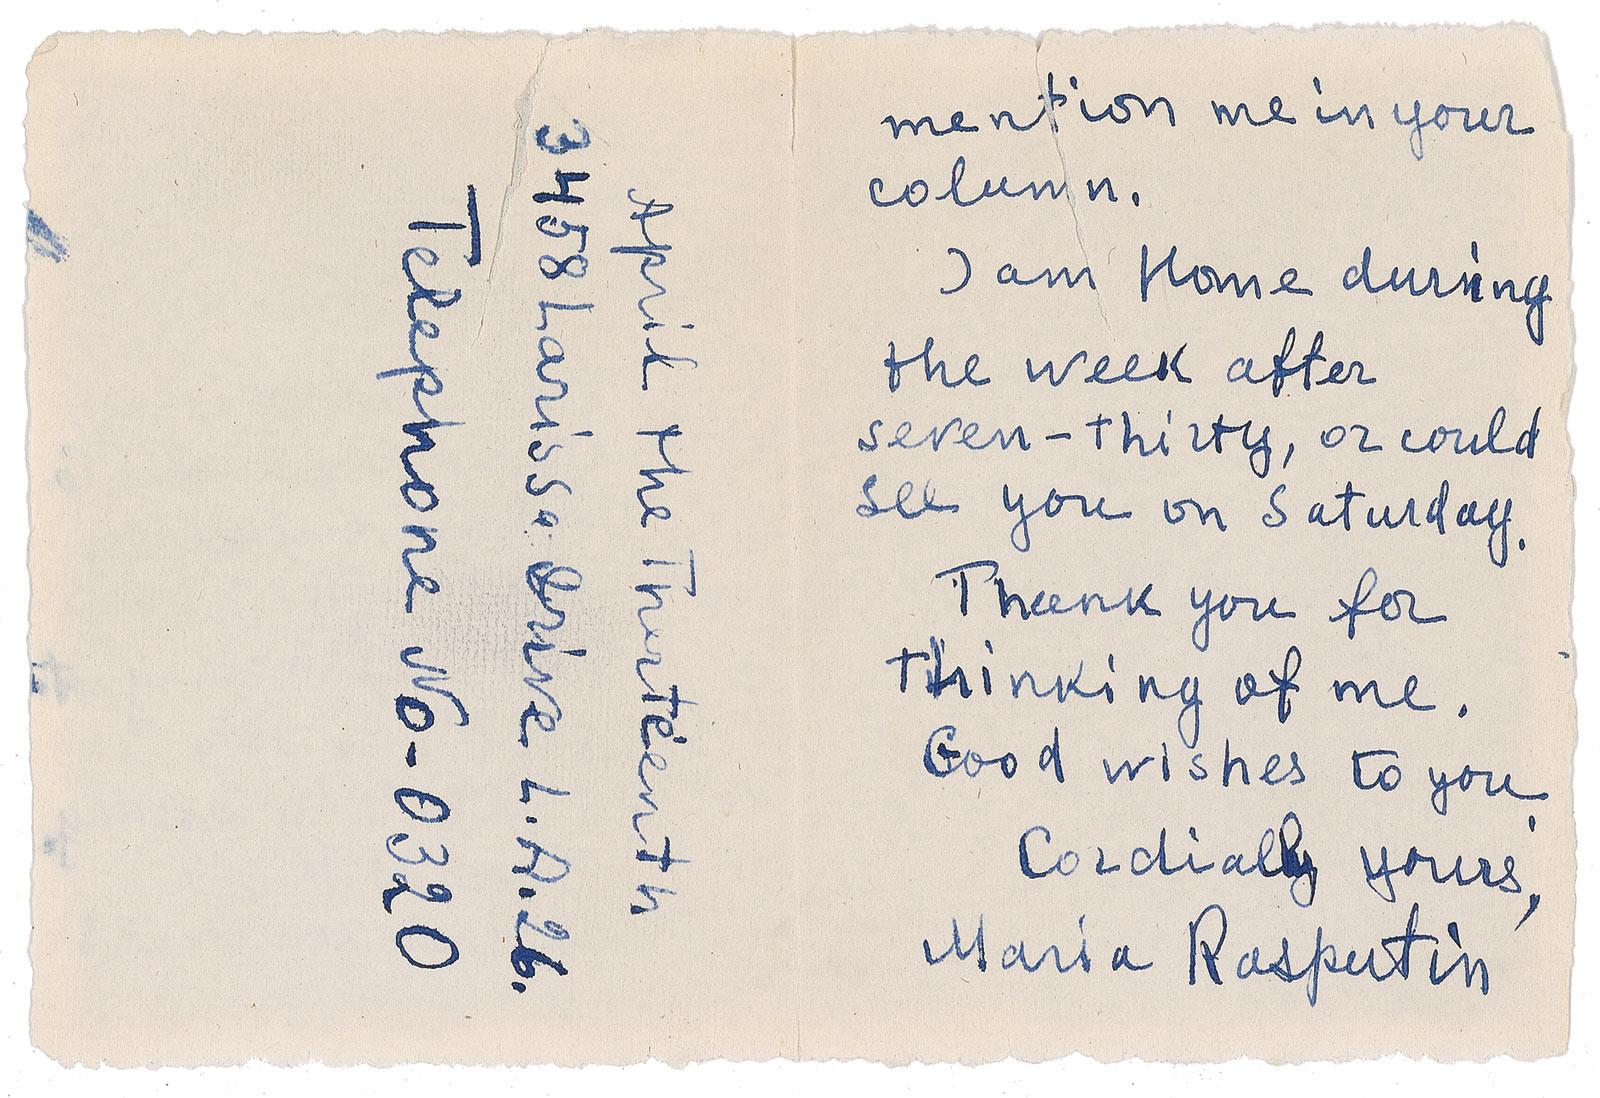 April the Therteenth
3458 Larissa Drive L.A.26.
Telephone No-0320
mention me in your
column.
I am Home during
the week after
seven-thirty, or could
see you on Saturday.
Thank you for
thinking of me.
Good wishes to you
Cordially yours,
Maria Rasputin